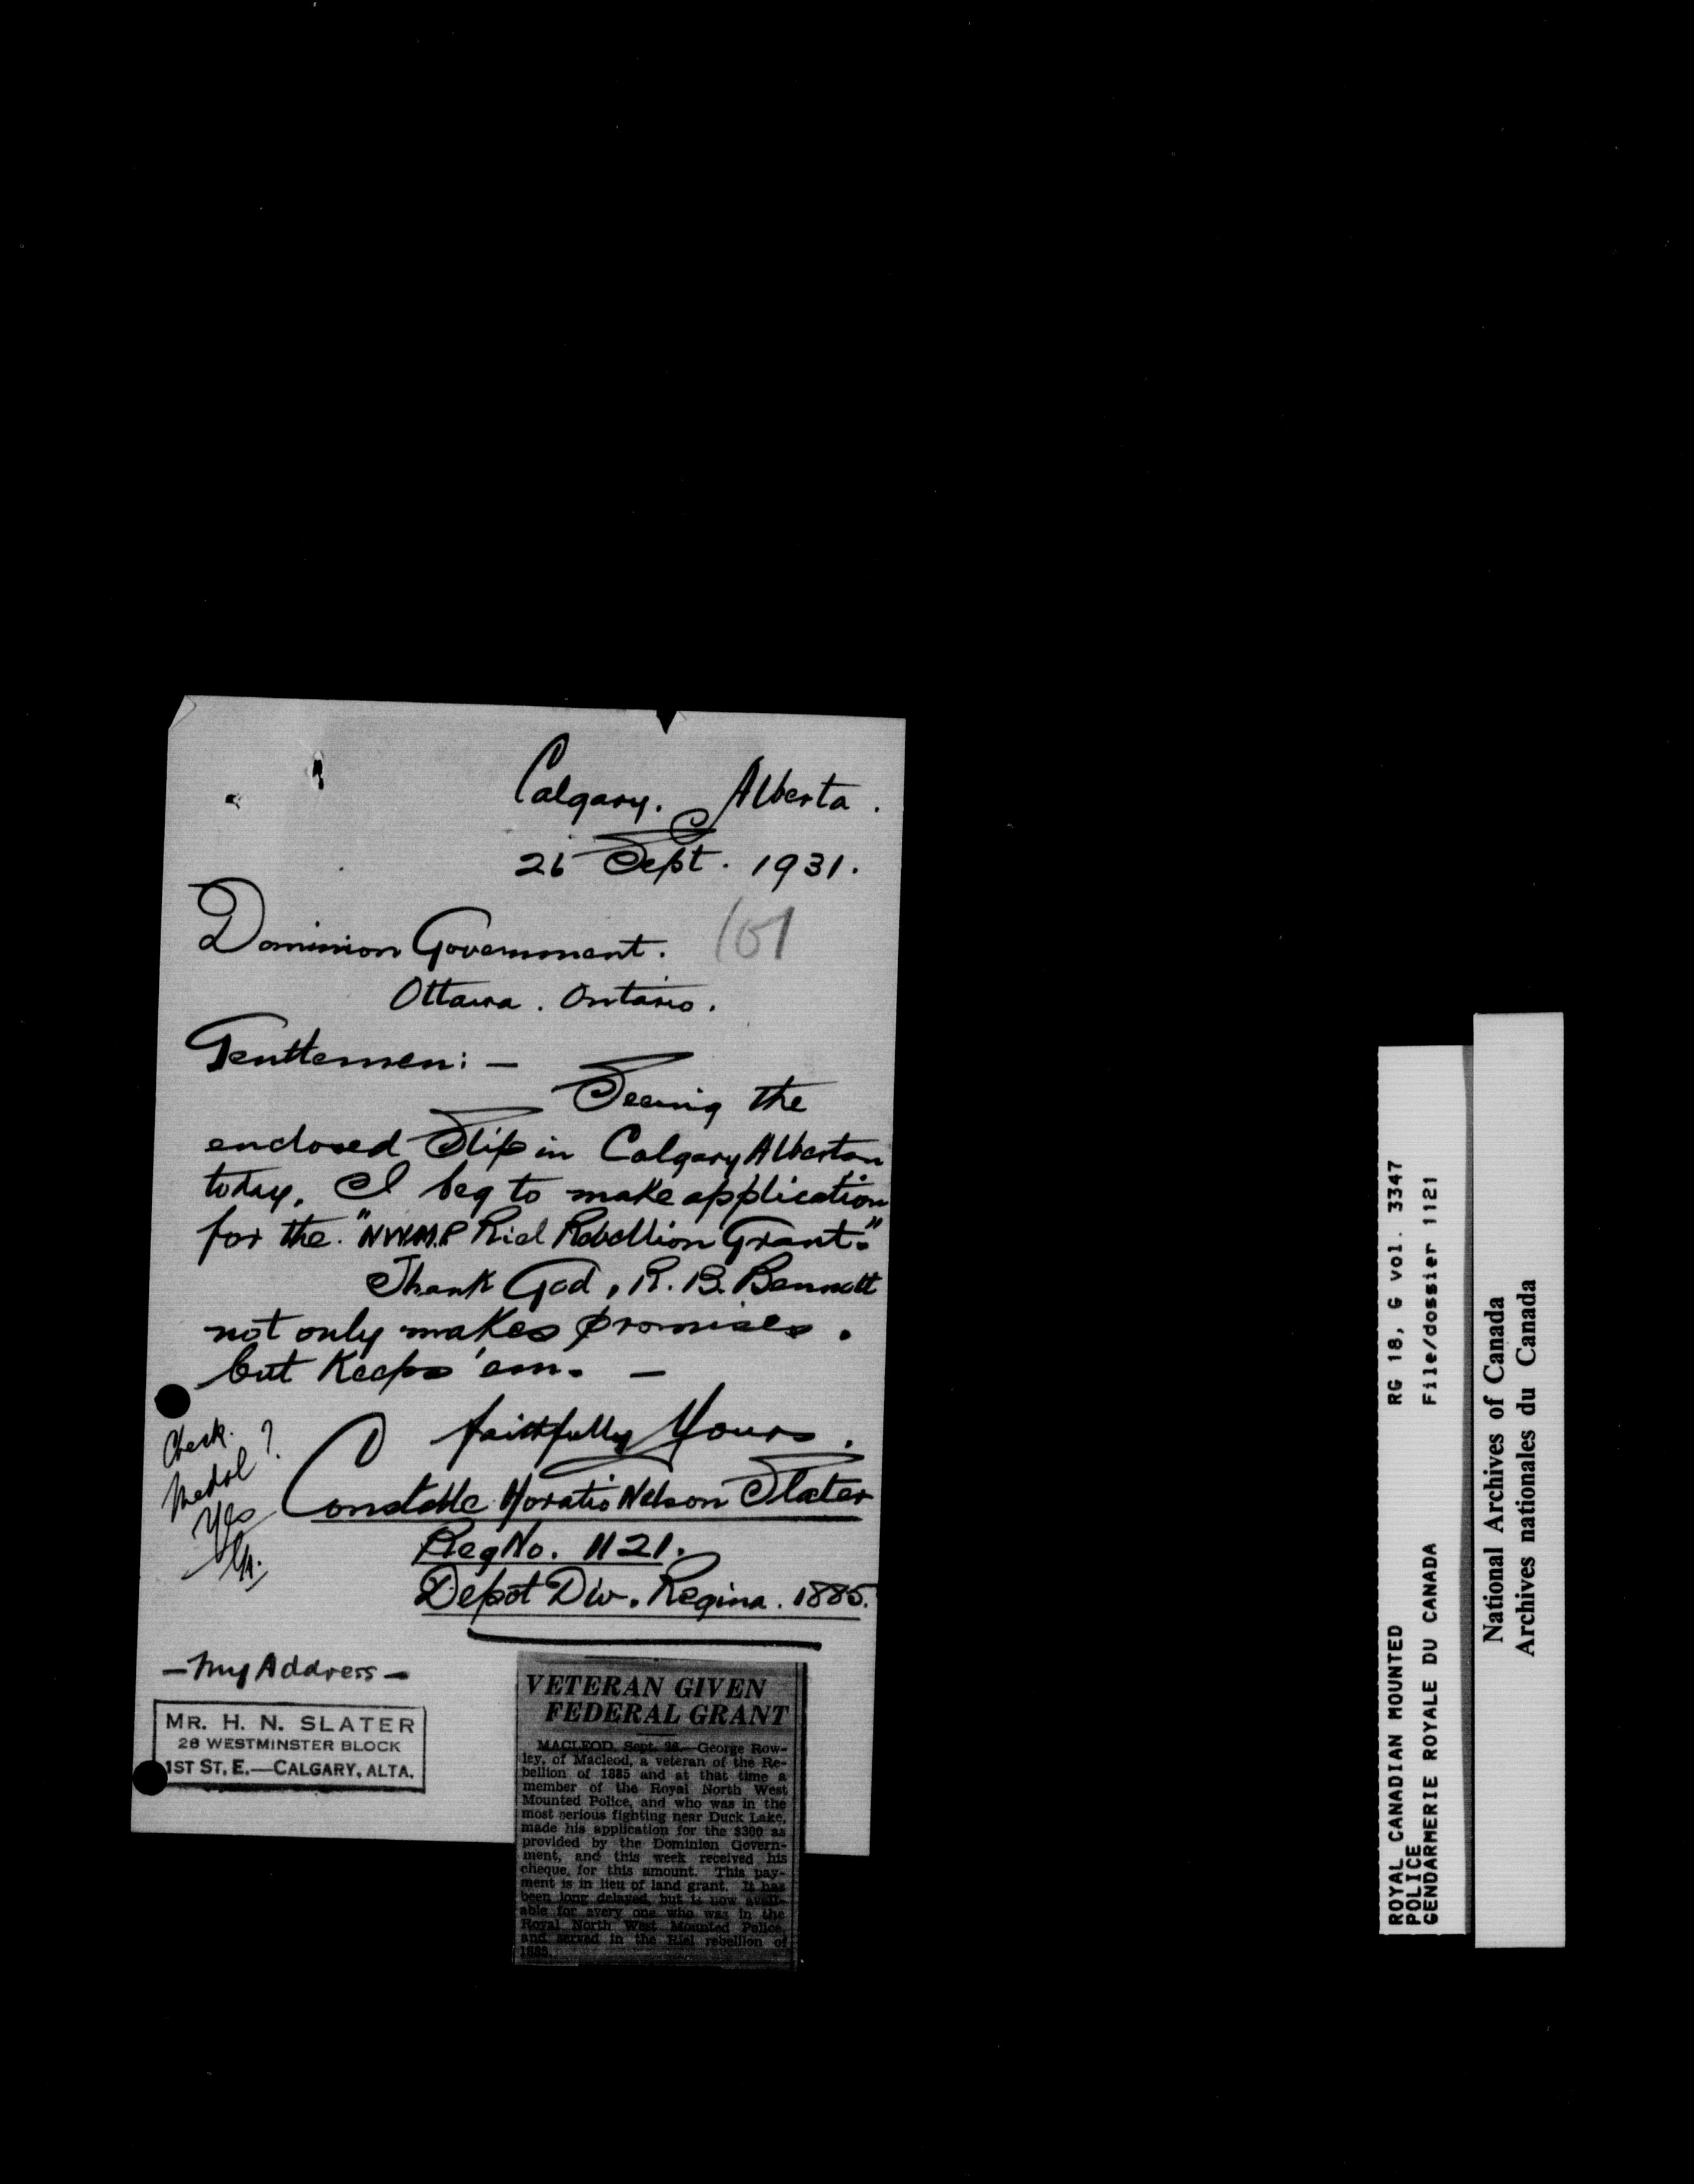 Calgary. Alberta.
26 Sept. 1931.
101
Dominion Government.
Ottawa. Ontario.
Gentlemen: —
Seeing the
enclosed Slip in Calgary Albertan
today. I beg to make application
for the. "NWM.P Riel Rebellion Grant."
Thank God, R. B. Bennett
not only makes promises.
but Keeps 'em. —
faithfully Yours.
Constable Horatio Nelson Slater
Reg No. 1121.
Depot Div. Regina. 1885.
Check.
Medal?
Yes
— My Address —
MR. H. N. SLATER
28 WESTMINSTER BLOCK
1ST ST. E.—CALGARY, ALTA.
VETERAN GIVEN
FEDERAL GRANT
MACLEOD, Sept. 26.—George Row-
ley, of Macleod, a veteran of the Re-
bellion of 1885 and at that time a
member of the Royal North West
Mounted Police, and who was in the
most serious fighting near Duck Lake,
made his application for the $300 as
provided by the Dominion Govern-
ment, and this week received his
cheque, for this amount. This pay-
ment is in lieu of land grant. It has
been long delayed, but is now avail-
able for every one who was in the
Royal North West Mounted Police,
and served in the Riel rebellion of
1885.
ROYAL CANADIAN MOUNTED RG 18, G vol. 3347
POLICE
GENDARMERIE ROYALE DU CANADA File/dossier 1121
National Archives of Canada
Archives nationales du Canada